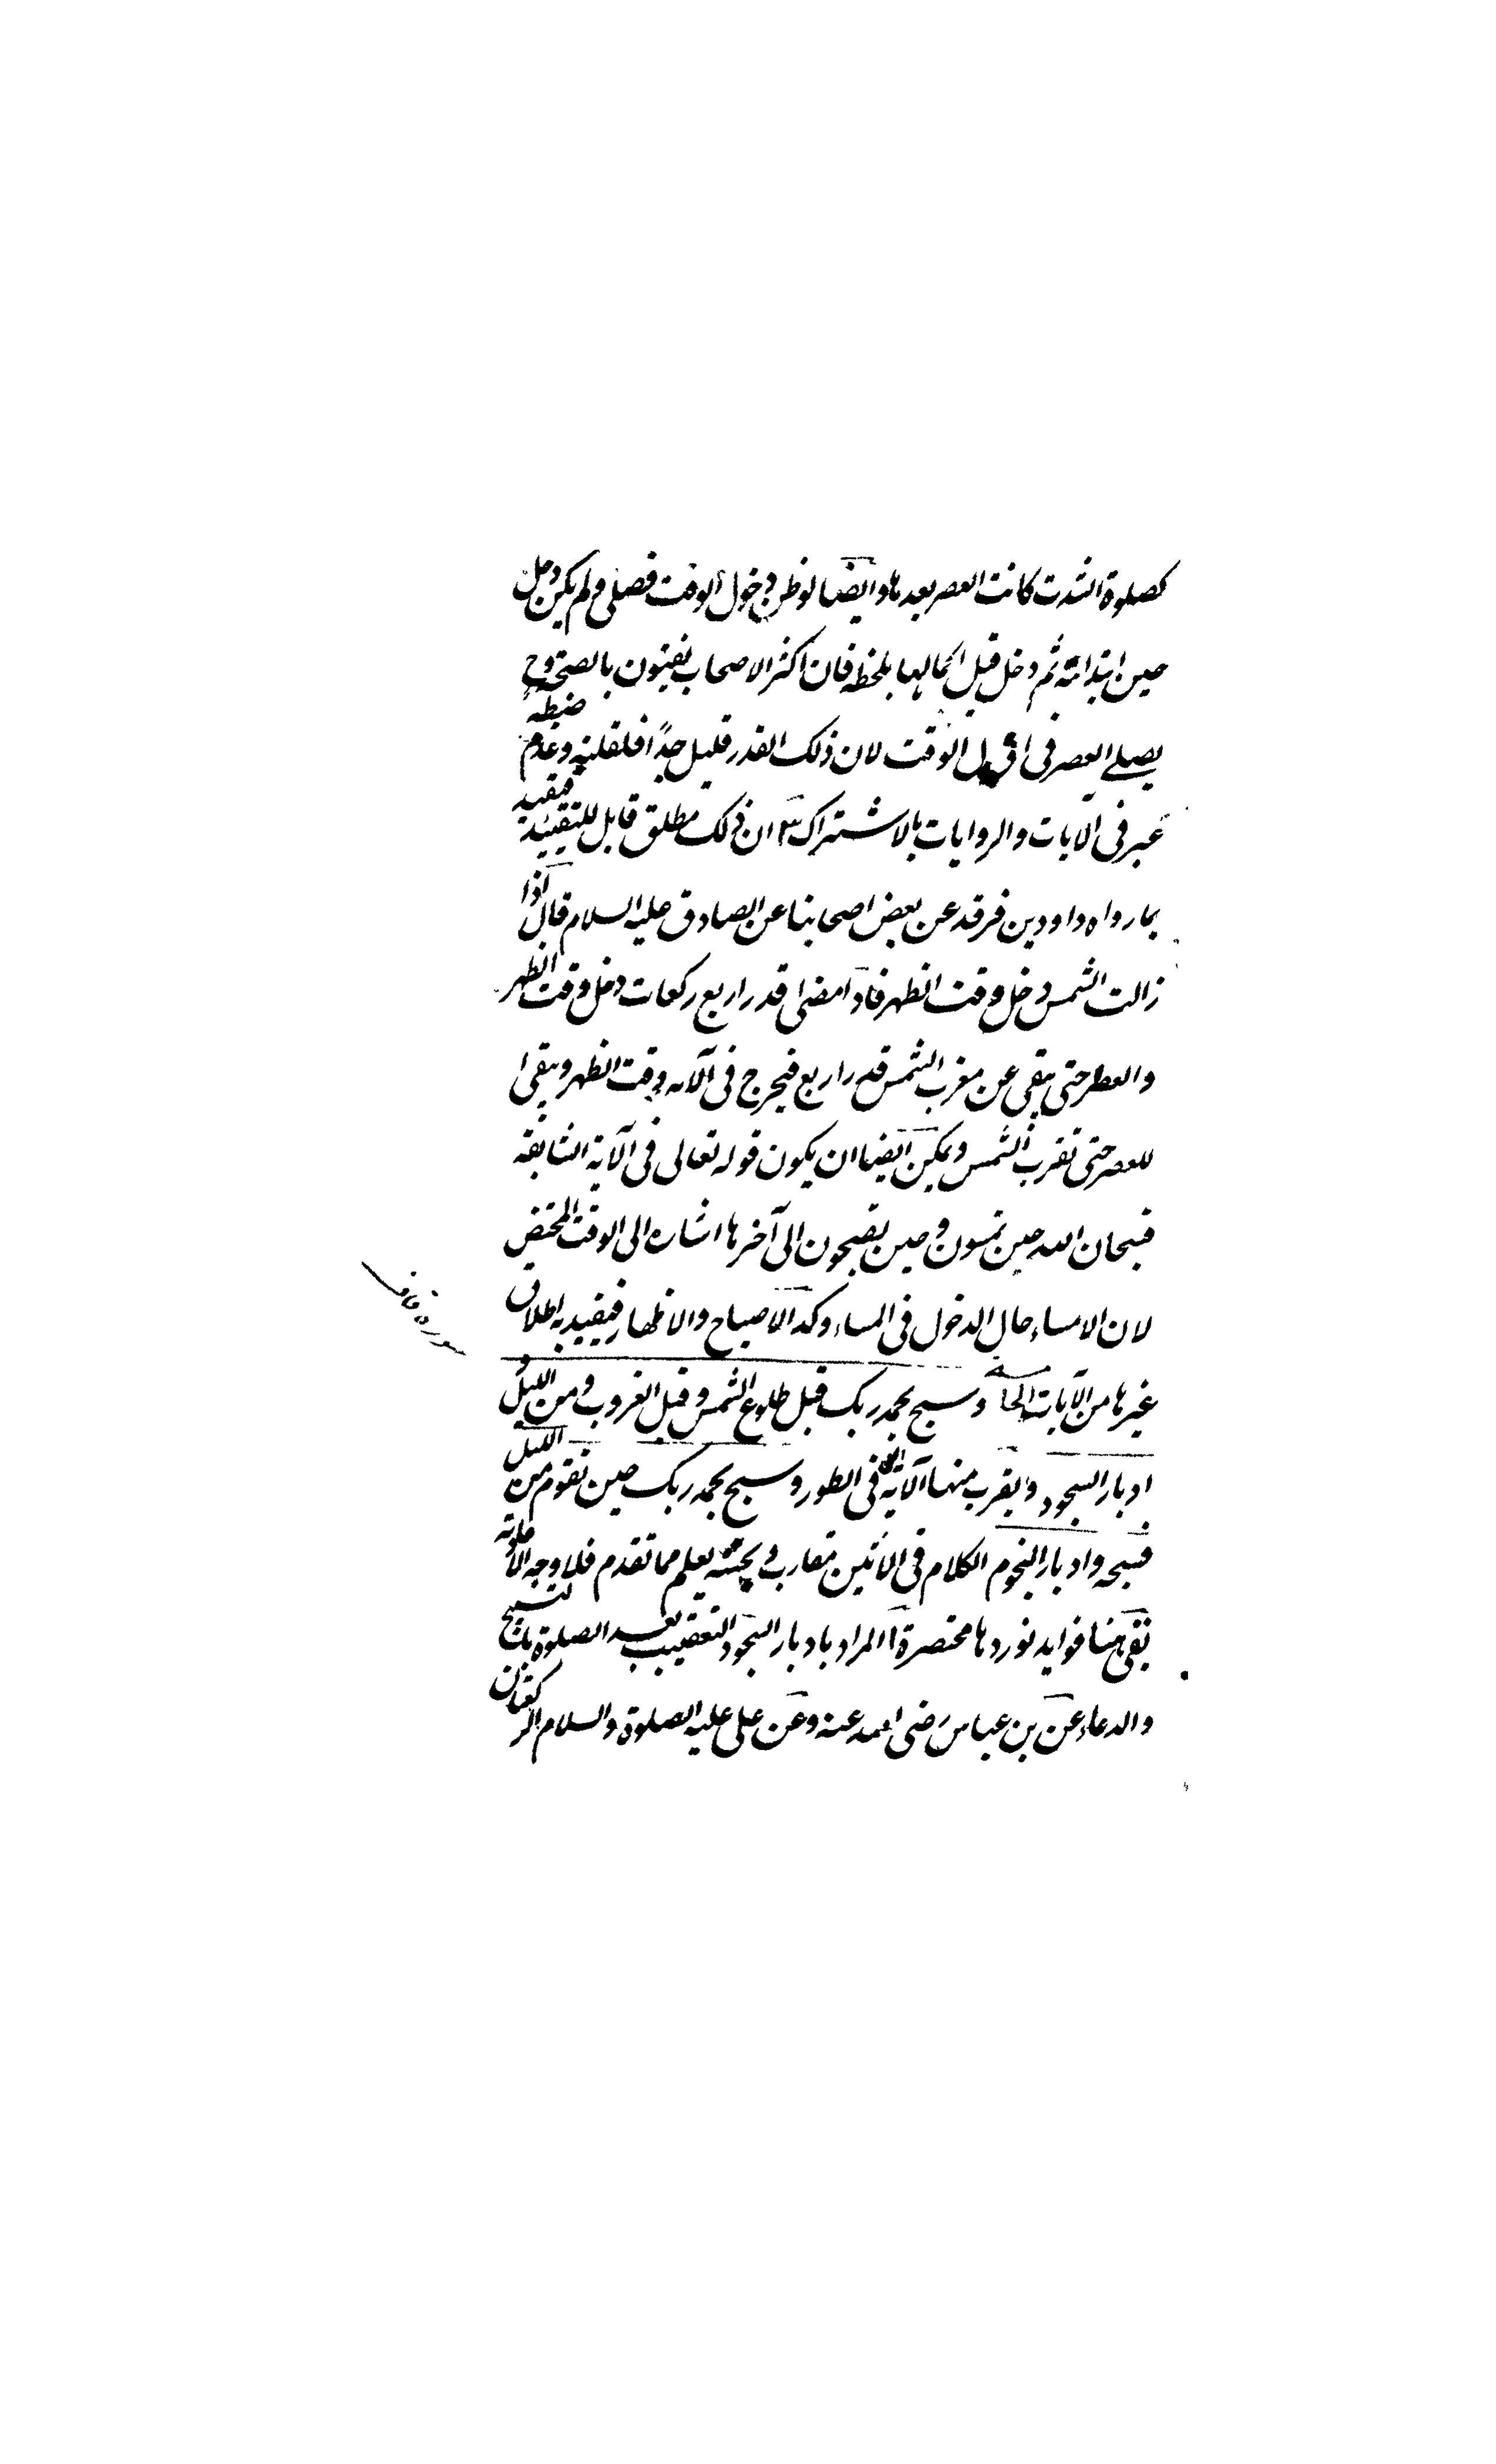 كصلوة الشدت كانت العصر بعدها وايضا لو ظن دخول الوقت فصلى ولم يكن دخل
حين ابتدائه ثم دخل قبل اكمالها بلحظة فان اكثر الاصحاب يفتون بالصحة وح
يصلى العصر فى اول الوقت لان ذلك القدر قليل جدًا فلقلته وعدم ضبطه
عبر فى الآيات والروايات بالاشتراك ٣ ان ذلك مطلق قابل للتقييد فيقيد
بما رواه داود بن فرقد عن بعض اصحابنا عن الصادق عليه السلام قال اذا
زالت الشمس دخل وقت الظهر فاذا مضى قدر اربع ركعات دخل وقت الظهر
والعصر حتى يبقى عن مغرب الشمس قدر اربع فيخرج فى الآن وقت الظهر ويبقى
للعصر حتى تغرب الشمس ويمكن ايضا ان يكون قوله تعالى فى الآية السابقة
فسبحان الله حين تمسون وحين تصبحون الى آخرها اشاره الى الوقت المختص
لان الامساء حال الدخول فى المساء وكذا الاصباح والاظهار فيقيد به اطلاق
سوره قاف
غيرها من الآيات وسبح بحمد ربك قبل طلوع الشمس وقبل الغروب ومن الليل
ادبار السجود ويقرب منها الآية فى الطور وسبح بحمد ربك حين تقوم من الليل
فسبحه وادبار النجوم الكلام فى الآيتين متقارب يعلم مما تقدم فلا وجه لاعادته
بقى هنا فوايد نوردها مختصرة ١ المراد بادبار السجود التعقيب بعد الصلوة بالتسبيح
والدعاء عن بن عباس رضى الله عنه وعن على عليه الصلوة والسلام الركعتان